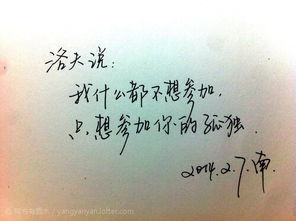 洛夫说:
我什么都不想参加,
只想参加你的孤独.
2014.2.7.南.
yangyanyan.lofter.com